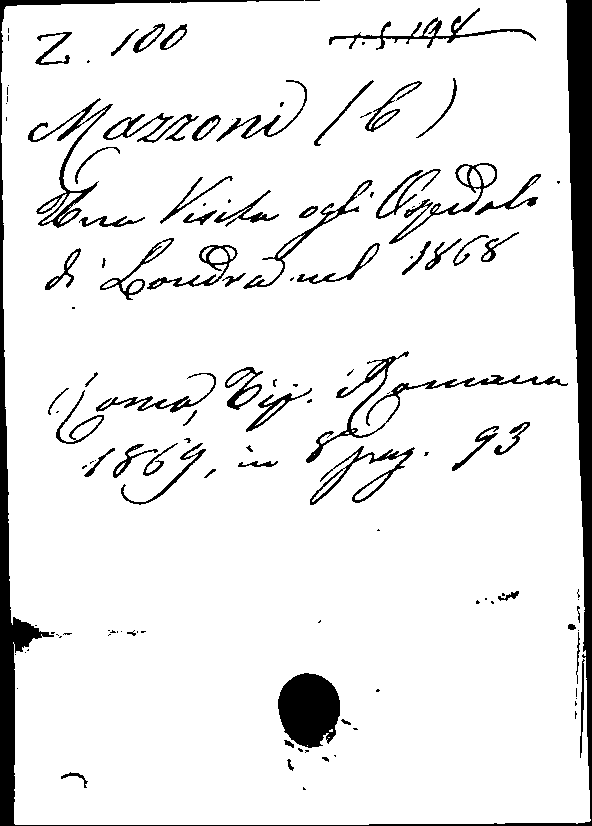 Z. 100 1.5.198
Mazzoni (C)
Una Visita agli Ospedali
di Londra nel 1868
Roma, Tip. Romana
1869, in 8° pag. 93